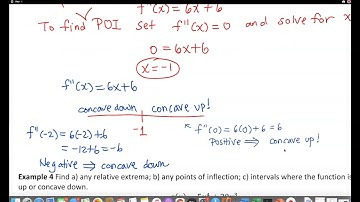 f"(x) = 6x+6
To find POI set f"(x)=0 and solve for x
0 = 6x+6
x=-1
f"(x) = 6x+6
concave down concave up!
-1
f"(-2) = 6(-2)+6
= -12+6 = -6
Negative ⇒ concave down
f"(0) = 6(0)+6 = 6
Positive ⇒ concave up!
Example 4 Find a) any relative extrema; b) any points of inflection; c) intervals where the function is
up or concave down.